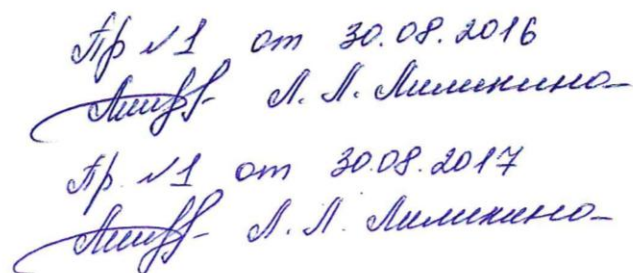 Пр №1 от 30.08.2016
Л. Л. Лимикина
Пр. №1 от 30.08.2017
Л. Л. Лимикина